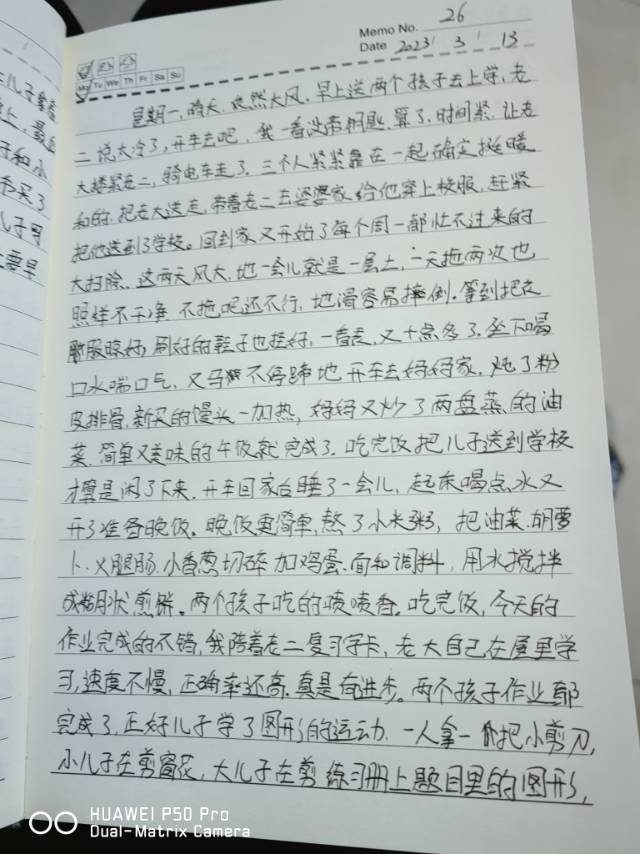 Memo No. 26
Mo Tu We Th Fr Sa Su
Date 2023 / 3 / 13
星期一,晴天,依然大风。早上送两个孩子去上学,老
二说太冷了,开车去吧,我一看没带钥匙,算了,时间紧,让老
大搂紧老二,骑电车走了,三个人紧紧靠在一起确实挺暖
和的。把老大送走,带着老二去婆婆家给他穿上校服,赶紧
把他送到了学校。回到家又开始了每个周一都忙不过来的
大扫除。这两天风大,地一会儿就是一层土,一天拖两次也
照样不干净,不拖吧还不行,地滑容易摔倒。等到把衣
服晾好,刷好的鞋子也挂好,一看表,又十点多了。坐下喝
口水喘口气,又马不停蹄地开车去妈妈家,炖了粉
皮排骨,新买的馒头一加热,妈妈又炒了两盘蒸的油
菜,简单又美味的午饭就完成了。吃完饭把儿子送到学校
才算是闲了下来,开车回家台睡了一会儿,起来喝点水又
开了准备晚饭。晚饭更简单,熬了小米粥,把油菜、胡萝
卜、火腿肠、小香葱切碎加鸡蛋、面和调料,用水搅拌
成糊状煎饼。两个孩子吃的喷喷香。吃完饭,今天的
作业完成的不错,我陪着老二复习字卡,老大自己在屋里学
习,速度不慢,正确率还高,真是有进步。两个孩子作业都
完成了,正好儿子学了图形的运动,一人拿一把小剪刀,
小儿子在剪窗花,大儿子在剪练习册上题目里的图形,
儿子
上,最后
子和小
书买了
儿子可
要早
HUAWEI P50 Pro
Dual-Matrix Camera